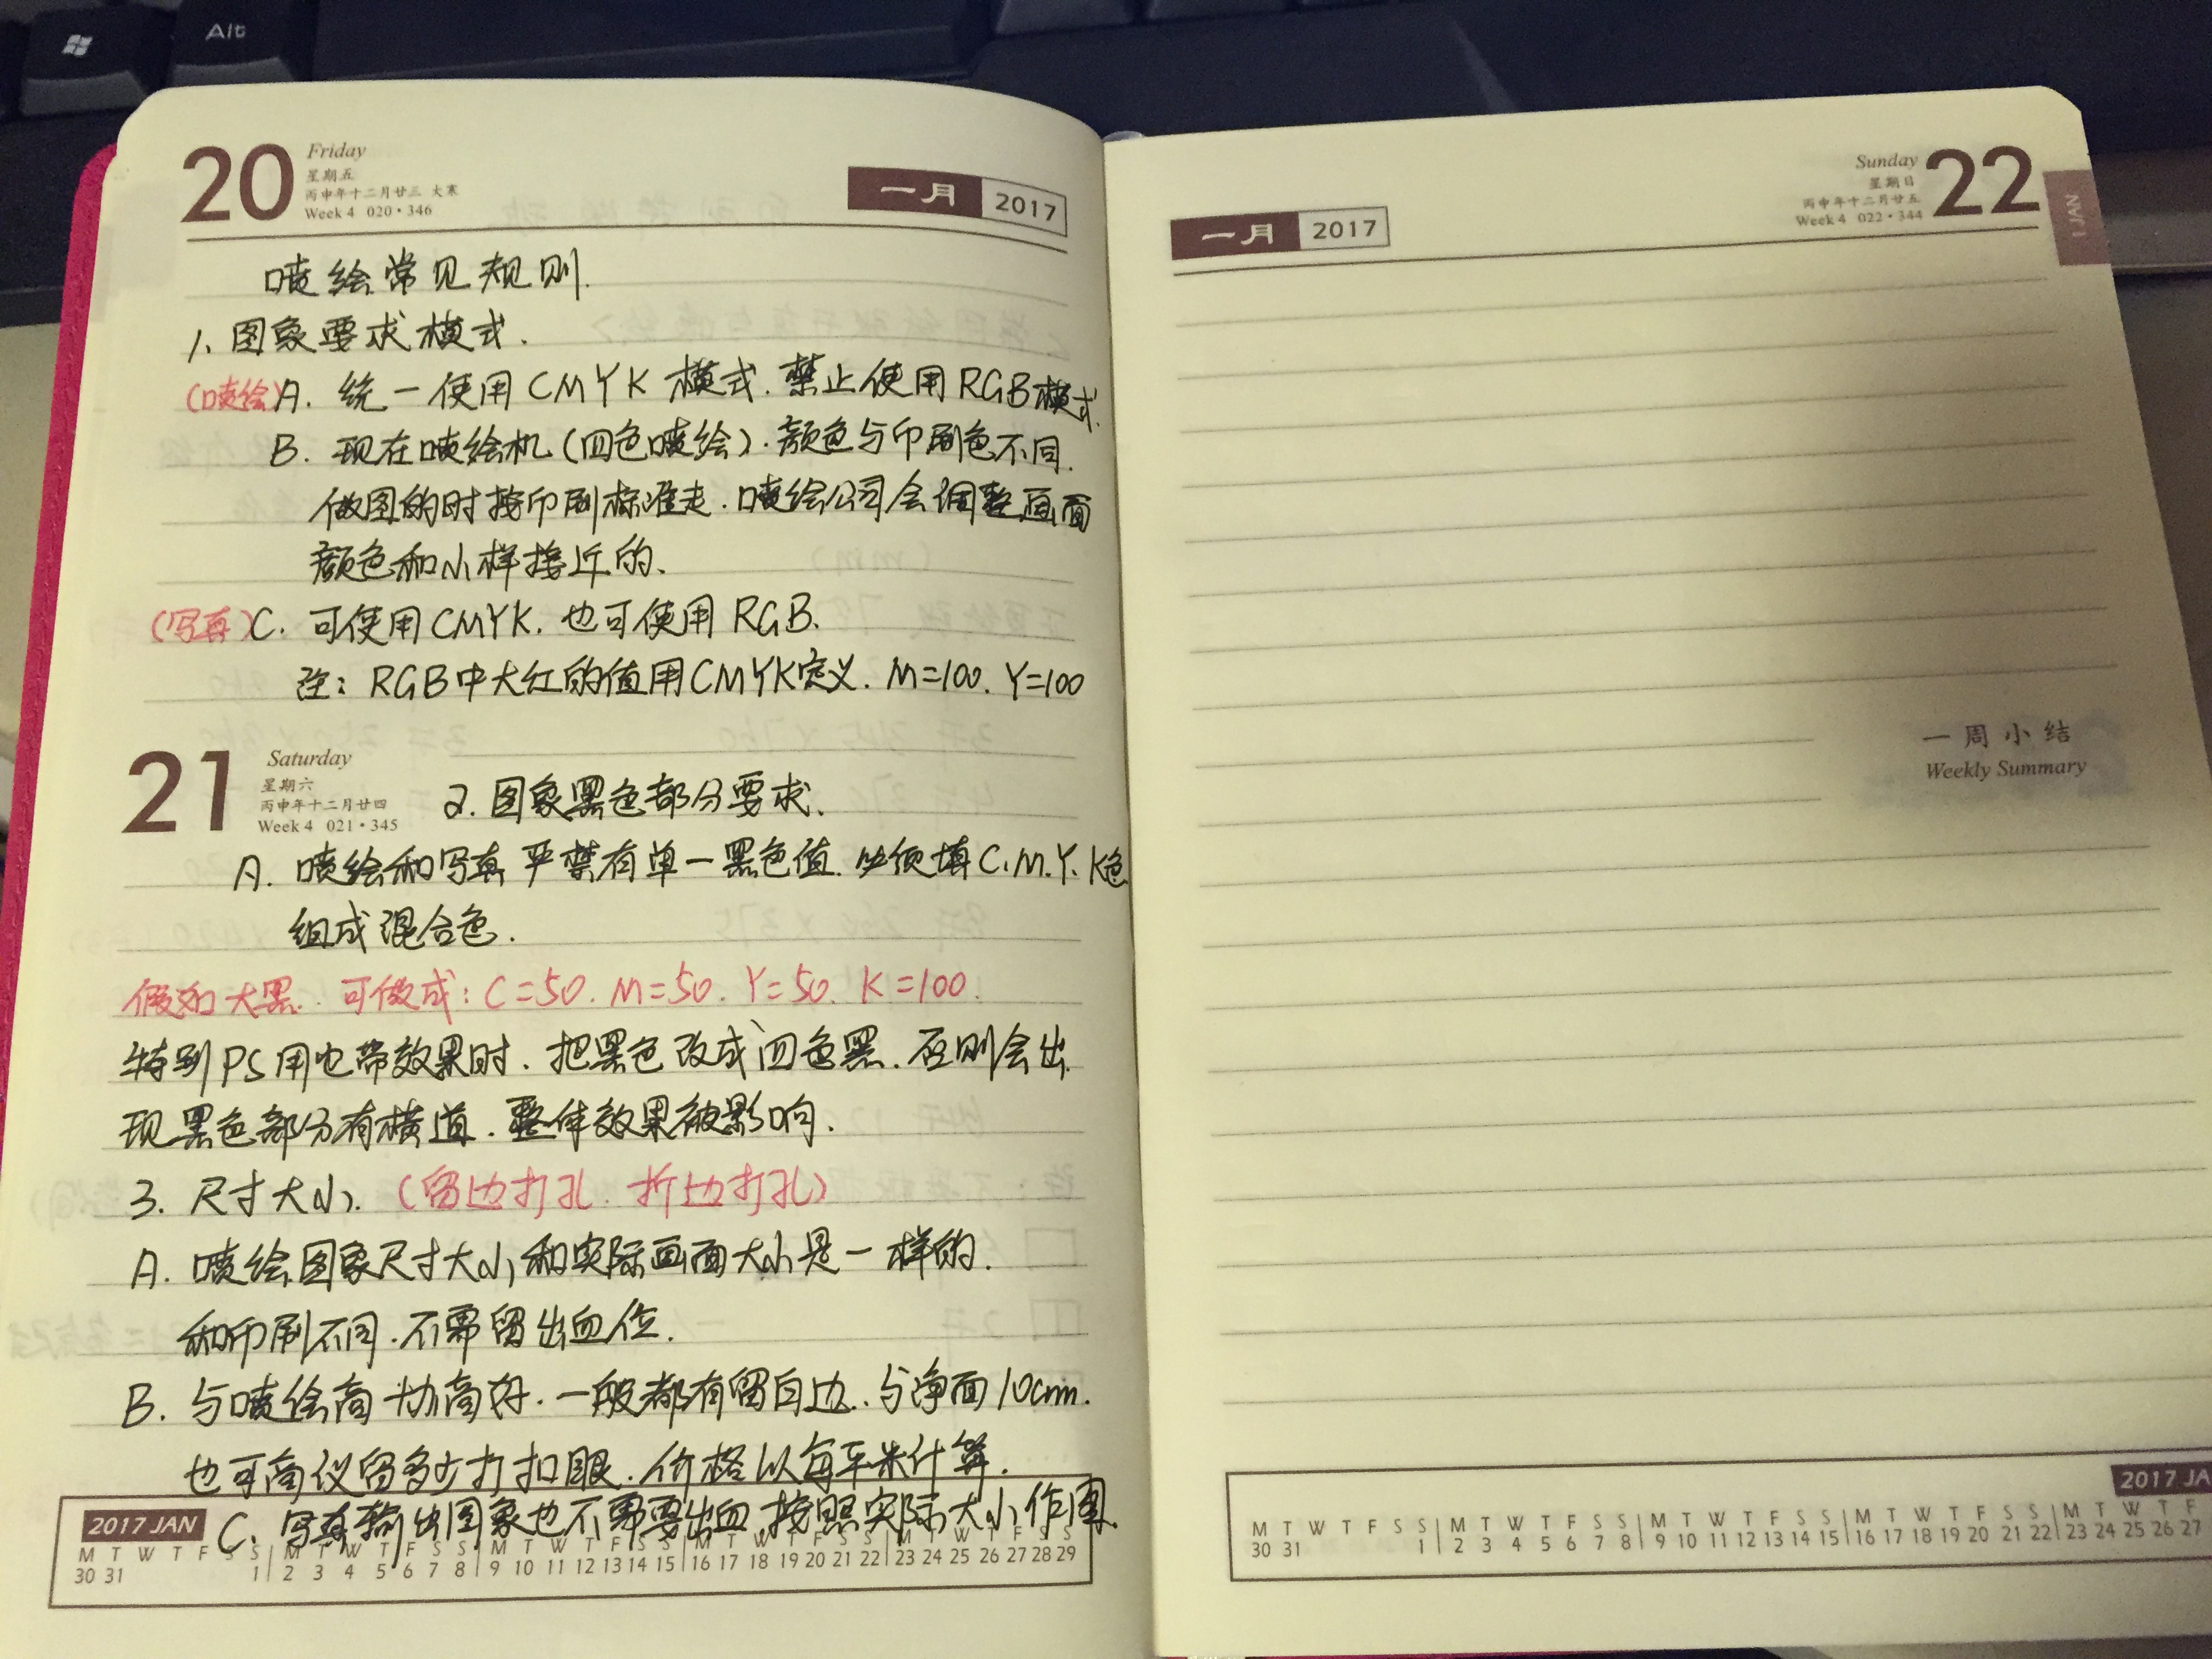 Alt
20 Friday
星期五
丙申年十二月廿三 大寒
Week 4 020·346
一月 2017
喷绘常见规则.
1、图象要求模式.
(喷绘)A. 统一使用CMYK模式.禁止使用RGB模式.
B. 现在喷绘机(四色喷绘).颜色与印刷色不同.
做图的时按印刷标准走.喷绘公司会调整画面
颜色和小样接近的、
(写真)C. 可使用CMYK.也可使用RGB.
注: RGB中大红的值用CMYK定义. M=100. Y=100
21 Saturday
星期六
丙申年十二月廿四
Week 4 021·345
2.图象黑色部分要求.
A. 喷绘和写真严禁有单一黑色值.必须填C.M.Y.K色
组成混合色.
假如大黑.可做成: C=50. M=50. Y=50. K=100.
特别PS用它带效果时.把黑色改成四色黑.否则会出
现黑色部分有横道.整体效果被影响.
3. 尺寸大小.(留边打孔.折边打孔)
A. 喷绘图象尺寸大小和实际画面大小是一样的.
和印刷不同.不需留出血位.
B. 与喷绘商协商好.一般都有留白边.与净画10cm.
也可商仪留多少打扣眼.价格以每平米计算.
C. 写真输出图象也不需要出血 按照实际大小作图.
2017 JAN
M T W T F S S M T W T F S S M T W T F S S M T W T F S S M T W T F S S
30 31 1 2 3 4 5 6 7 8 9 10 11 12 13 14 15 16 17 18 19 20 21 22 23 24 25 26 27 28 29
一月 2017
Sunday 22
星期日
丙申年十二月廿五
Week 4 022·344
1 JAN
一周小结
Weekly Summary
2017 JA
M T W T F S S M T W T F S S M T W T F S S M T W T F S S M T W T F
30 31 1 2 3 4 5 6 7 8 9 10 11 12 13 14 15 16 17 18 19 20 21 22 23 24 25 26 27